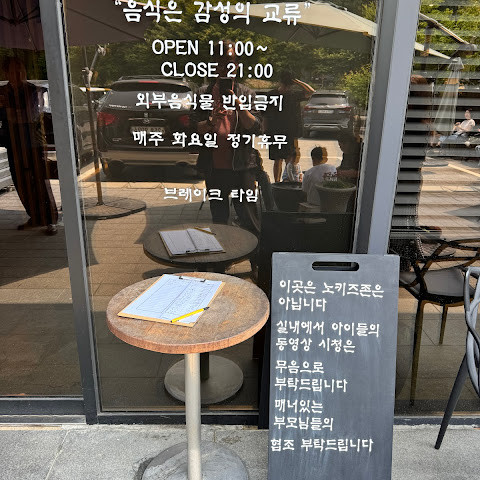 "음식은 감성의 교류"
OPEN 11:00~
CLOSE 21:00
외부음식물 반입금지
매주 화요일 정기휴무
브레이크 타임
이곳은 노키즈존은
아닙니다
실내에서 아이들의
동영상 시청은
무음으로
부탁드립니다
매너있는
부모님들의
협조 부탁드립니다